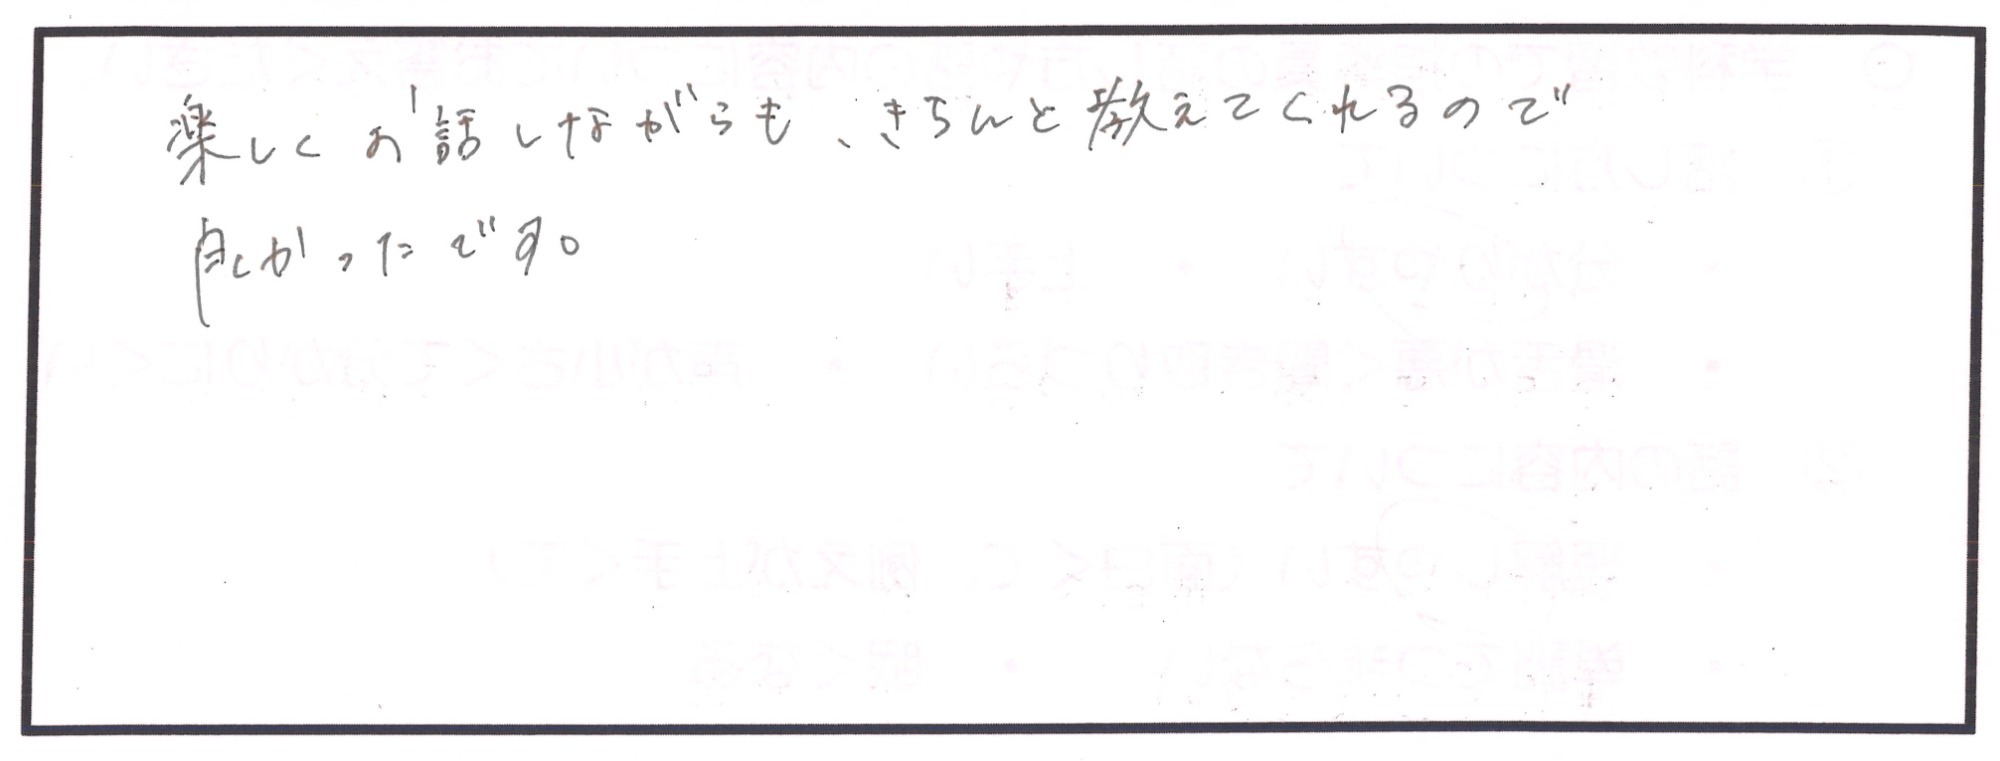 楽しくお話しながらも、きちんと教えてくれるので
良かったです。